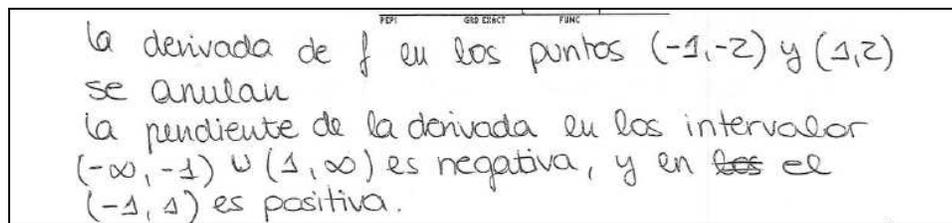 PEPI GRD EXACT FUNC
la derivada de f en los puntos (-1,-2) y (1,2)
se anulan
la pendiente de la derivada en los intervalor
(-∞,-1) ∪ (1,∞) es negativa, y en los el
(-1,1) es positiva.